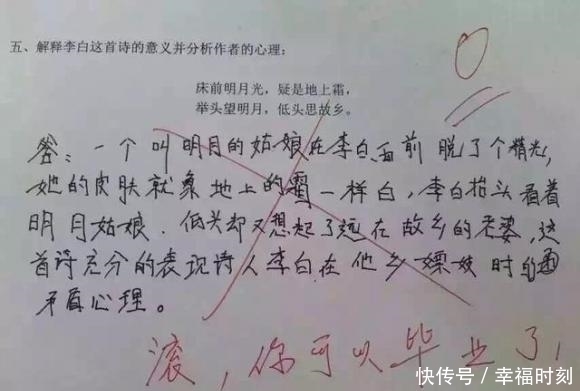 五、解释李白这首诗的意义并分析作者的心理：
床前明月光，疑是地上霜，
举头望明月，低头思故乡。
0
答：一个叫明月的姑娘在李白面前脱了个精光，
她的皮肤就象地上的霜一样白，李白抬头看着
明月姑娘．低头却又想起了远在故乡的老婆，这
首诗充分的表现诗人李白在他乡嫖妓时的
矛盾心理。
滚，你可以毕业了，
快传号/幸福时刻